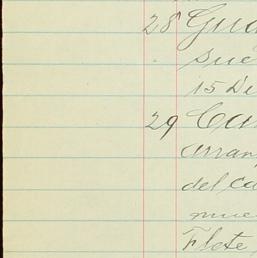 28 Gua
sue
15 Di
29 Ca
arran
del ca
mue
Flete